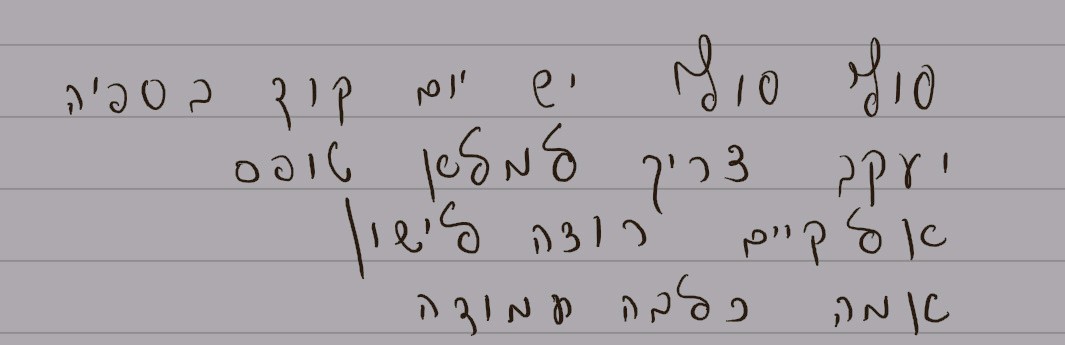 סוף סוף יש יום קוד בספיה
יעקב צריך למלא טופס
אלקיים רוצה לישון
אמה כלבה חמודה